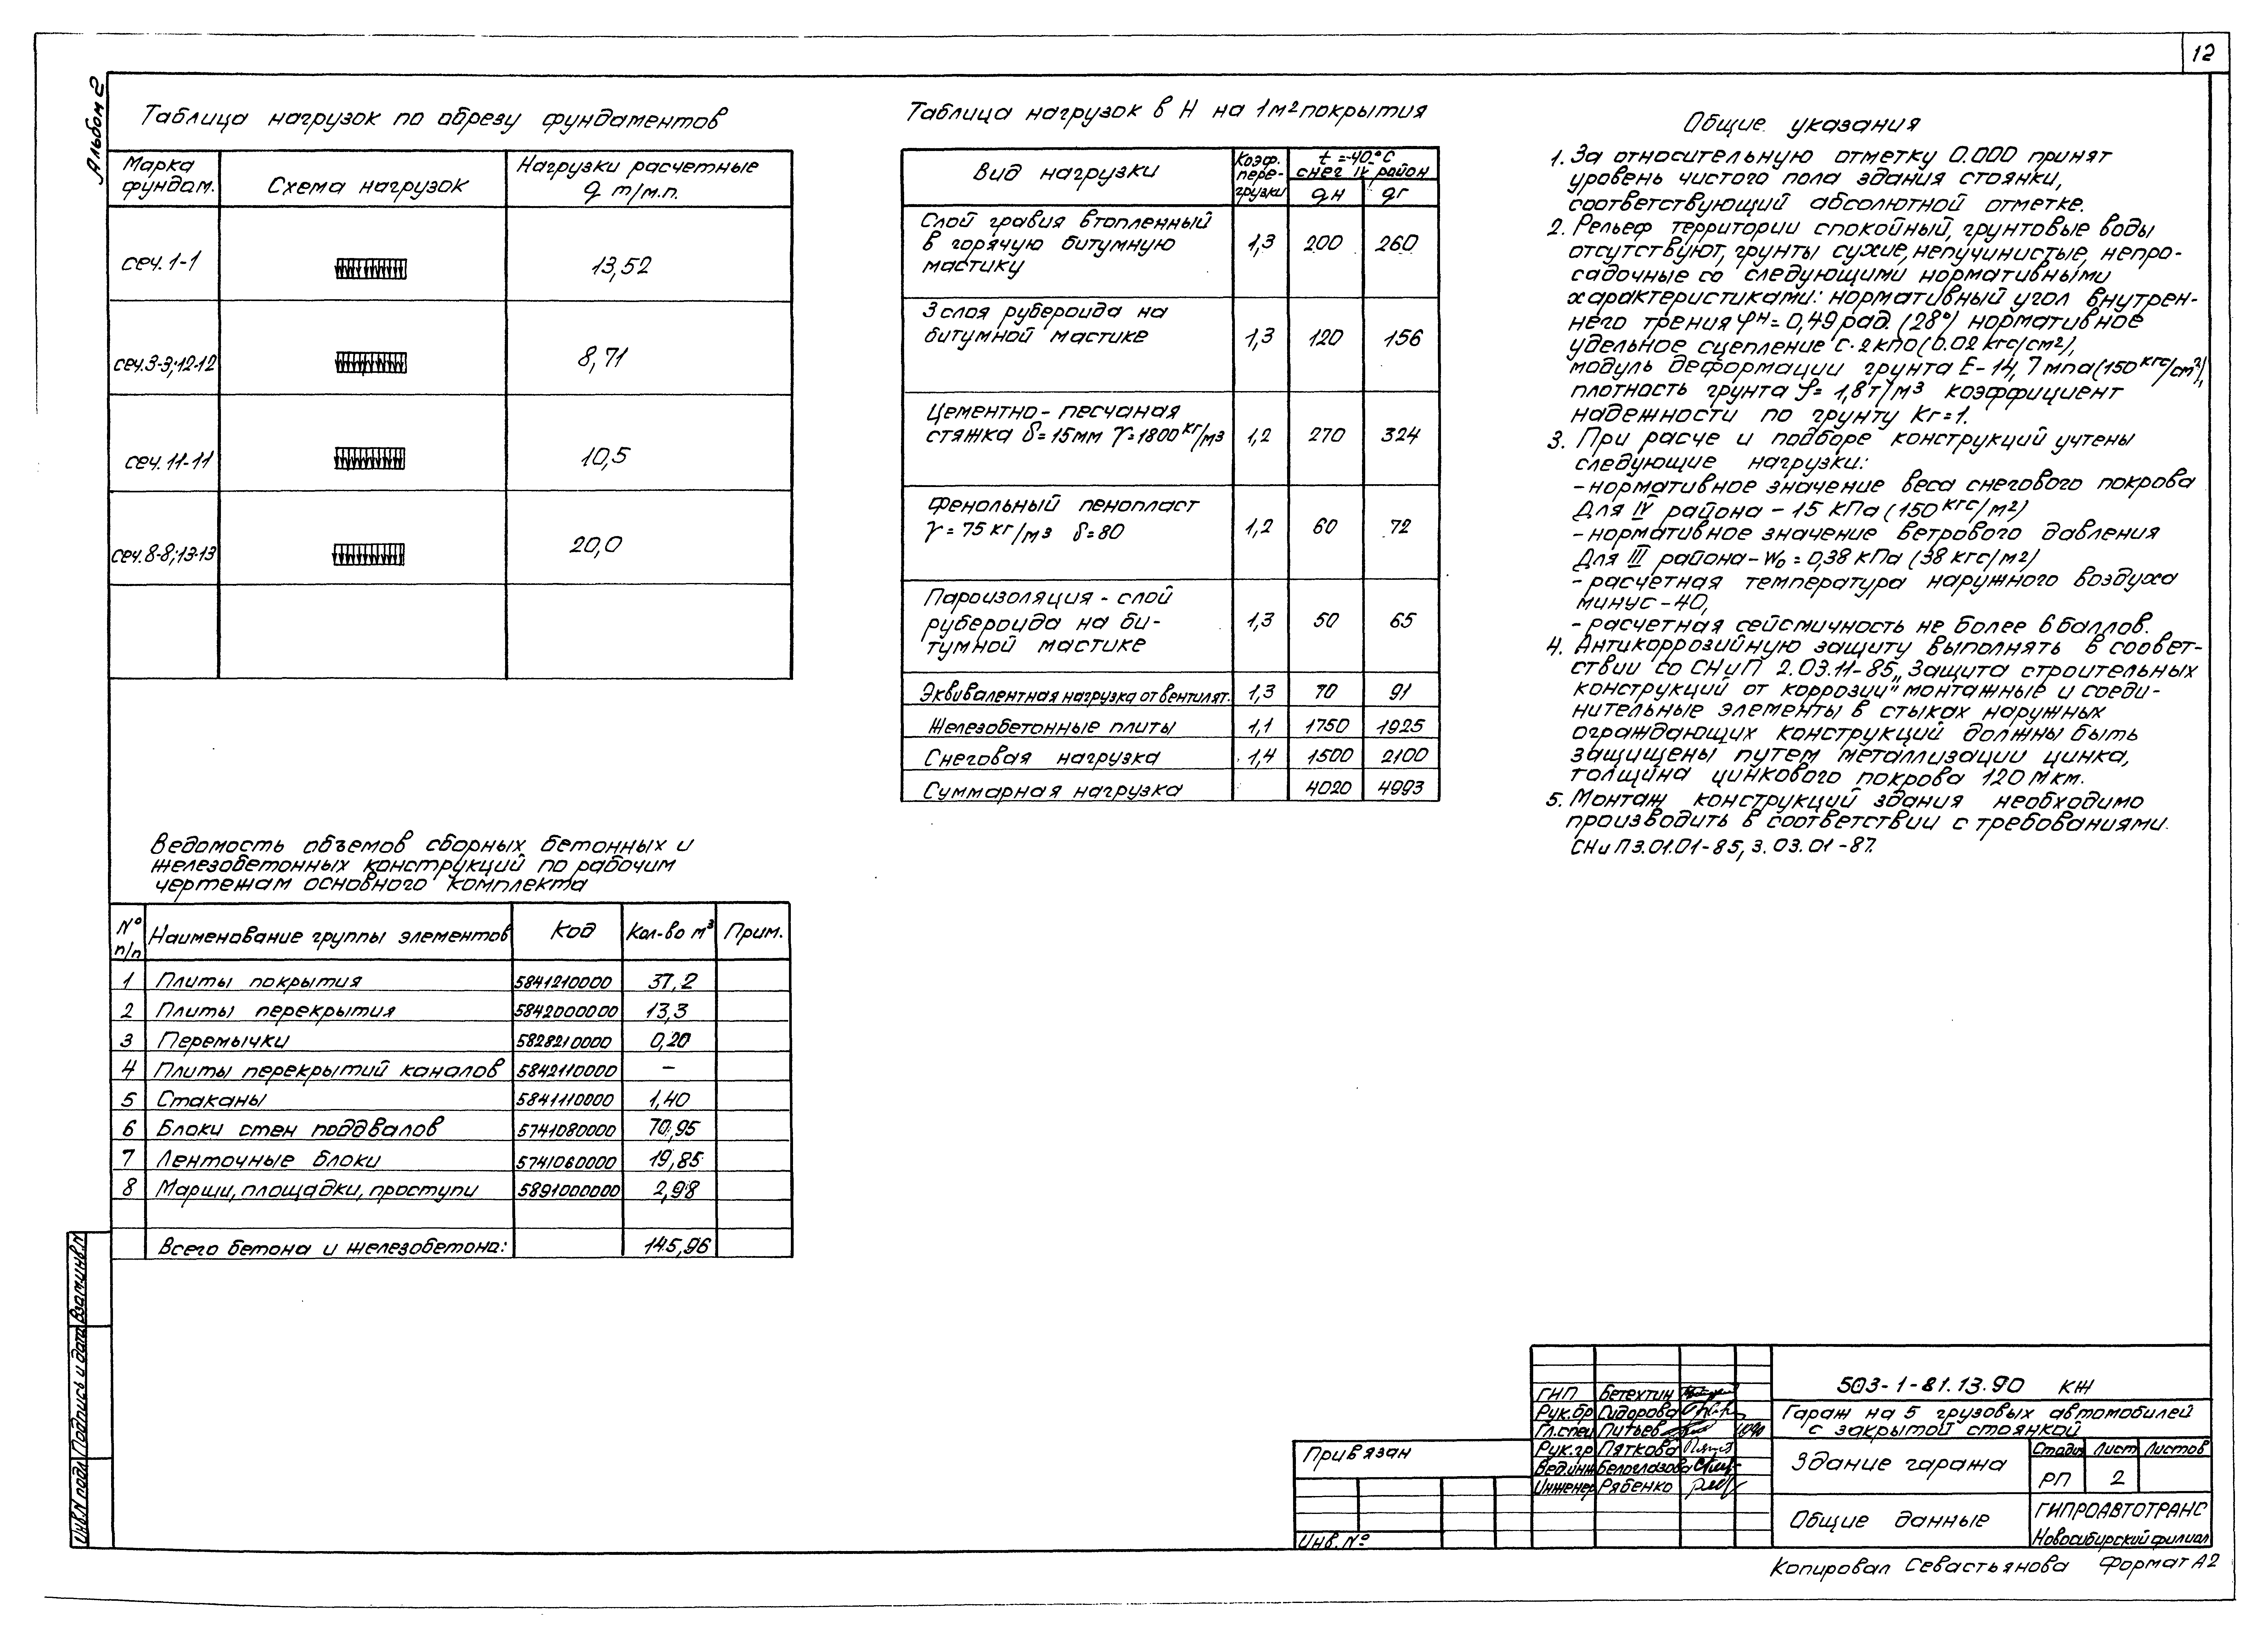 12
Альбом 2
Таблица нагрузок по обрезу фундаментов
Марка фундам.	Схема нагрузок	Нагрузки расчетные q т/м.п.
сеч. 1-1	13,52
сеч. 3-3; 12-12	8,71
сеч. 11-11	10,5
сеч. 8-8; 13-13	20,0
Ведомость объемов сборных бетонных и
железобетонных конструкций по рабочим
чертежам основного комплекта
№ п/п	Наименование группы элементов	Код	Кол-во м³	Прим.
1	Плиты покрытия	5841210000	37,2
2	Плиты перекрытия	5842000000	13,3
3	Перемычки	5828210000	0,20
4	Плиты перекрытий каналов	5842110000	–
5	Стаканы	5841110000	1,40
6	Блоки стен поддвалов	5741080000	70,95
7	Ленточные блоки	5741060000	19,85
8	Марши, площадки, проступи	5891000000	2,98
Всего бетона и железобетона:	145,96
Таблица нагрузок в Н на 1м² покрытия
Вид нагрузки	Коэф. пере-грузки	t=-40°С снег IV район
qн	qг
Слой гравия втопленный
в горячую битумную	1,3	200	260
мастику
3 слоя рубероида на
битумной мастике	1,3	120	156
Цементно-песчаная
стяжка δ=15мм γ=1800кг/м3	1,2	270	324
Фенольный пенопласт
γ=75кг/м3 δ=80	1,2	60	72
Пароизоляция - слой
рубероида на би-	1,3	50	65
тумной мастике
Эквивалентная нагрузка от вентилят.	1,3	70	91
Железобетонные плиты	1,1	1750	1925
Снеговая нагрузка	1,4	1500	2100
Суммарная нагрузка	4020	4993
Общие указания
1. За относительную отметку 0.000 принят
уровень чистого пола здания стоянки,
соответствующий абсолютной отметке.
2. Рельеф территории спокойный, грунтовые воды
отсутствуют, грунты сухие, непучинистые, непро-
садочные со следующими нормативными
характеристиками: нормативный угол внутрен-
него трения φн=0,49рад. (28°) нормативное
удельное сцепление с·2кпа (0.02кгс/см2),
модуль деформации грунта Е-14,7мпа (150кгс/см²),
плотность грунта φ=1,8т/м3 коэффициент
надежности по грунту Кг=1.
3. При расче и подборе конструкций учтены
следующие нагрузки:
- нормативное значение веса снегового покрова
для IV района - 15 кПа (150кгс/м2)
- нормативное значение ветрового давления
для III района - Wo = 0,38 кПа (38 кгс/м2)
- расчетная температура наружного воздуха
минус-40,
- расчетная сейсмичность не более 6 баллов.
4. Антикоррозийную защиту выполнять в соовет-
ствии со СНиП 2.03.11-85 „Защита строительных
конструкций от коррозии" монтажные и соеди-
нительные элементы в стыках наружных
ограждающих конструкций должны быть
защищены путем металлизации цинка,
толщина цинкового покрова 120 мкм.
5. Монтаж конструкций здания необходимо
производить в соответствии с требованиями.
СНиП 3.01.01-85, 3.03.01-87.
Взам.инв.N
Подпись и дата
Инв.N подл
Привязан
Инв. №
ГИП	Бетехтин
Рук.бр	Гидорова
Гл.спец	Питьев
Рук.гр	Пяткова
Вед.инж	Белоглазова
Инженер	Рябенко
503-1-81.13.90 КЖ
Гараж на 5 грузовых автомобилей
с закрытой стоянкой
Здание гаража
Стадия	Лист	Листов
РП	2
Общие данные
ГИПРОАВТОТРАНС
Новосибирский филиал
Копировал Севастьянова Формат А2